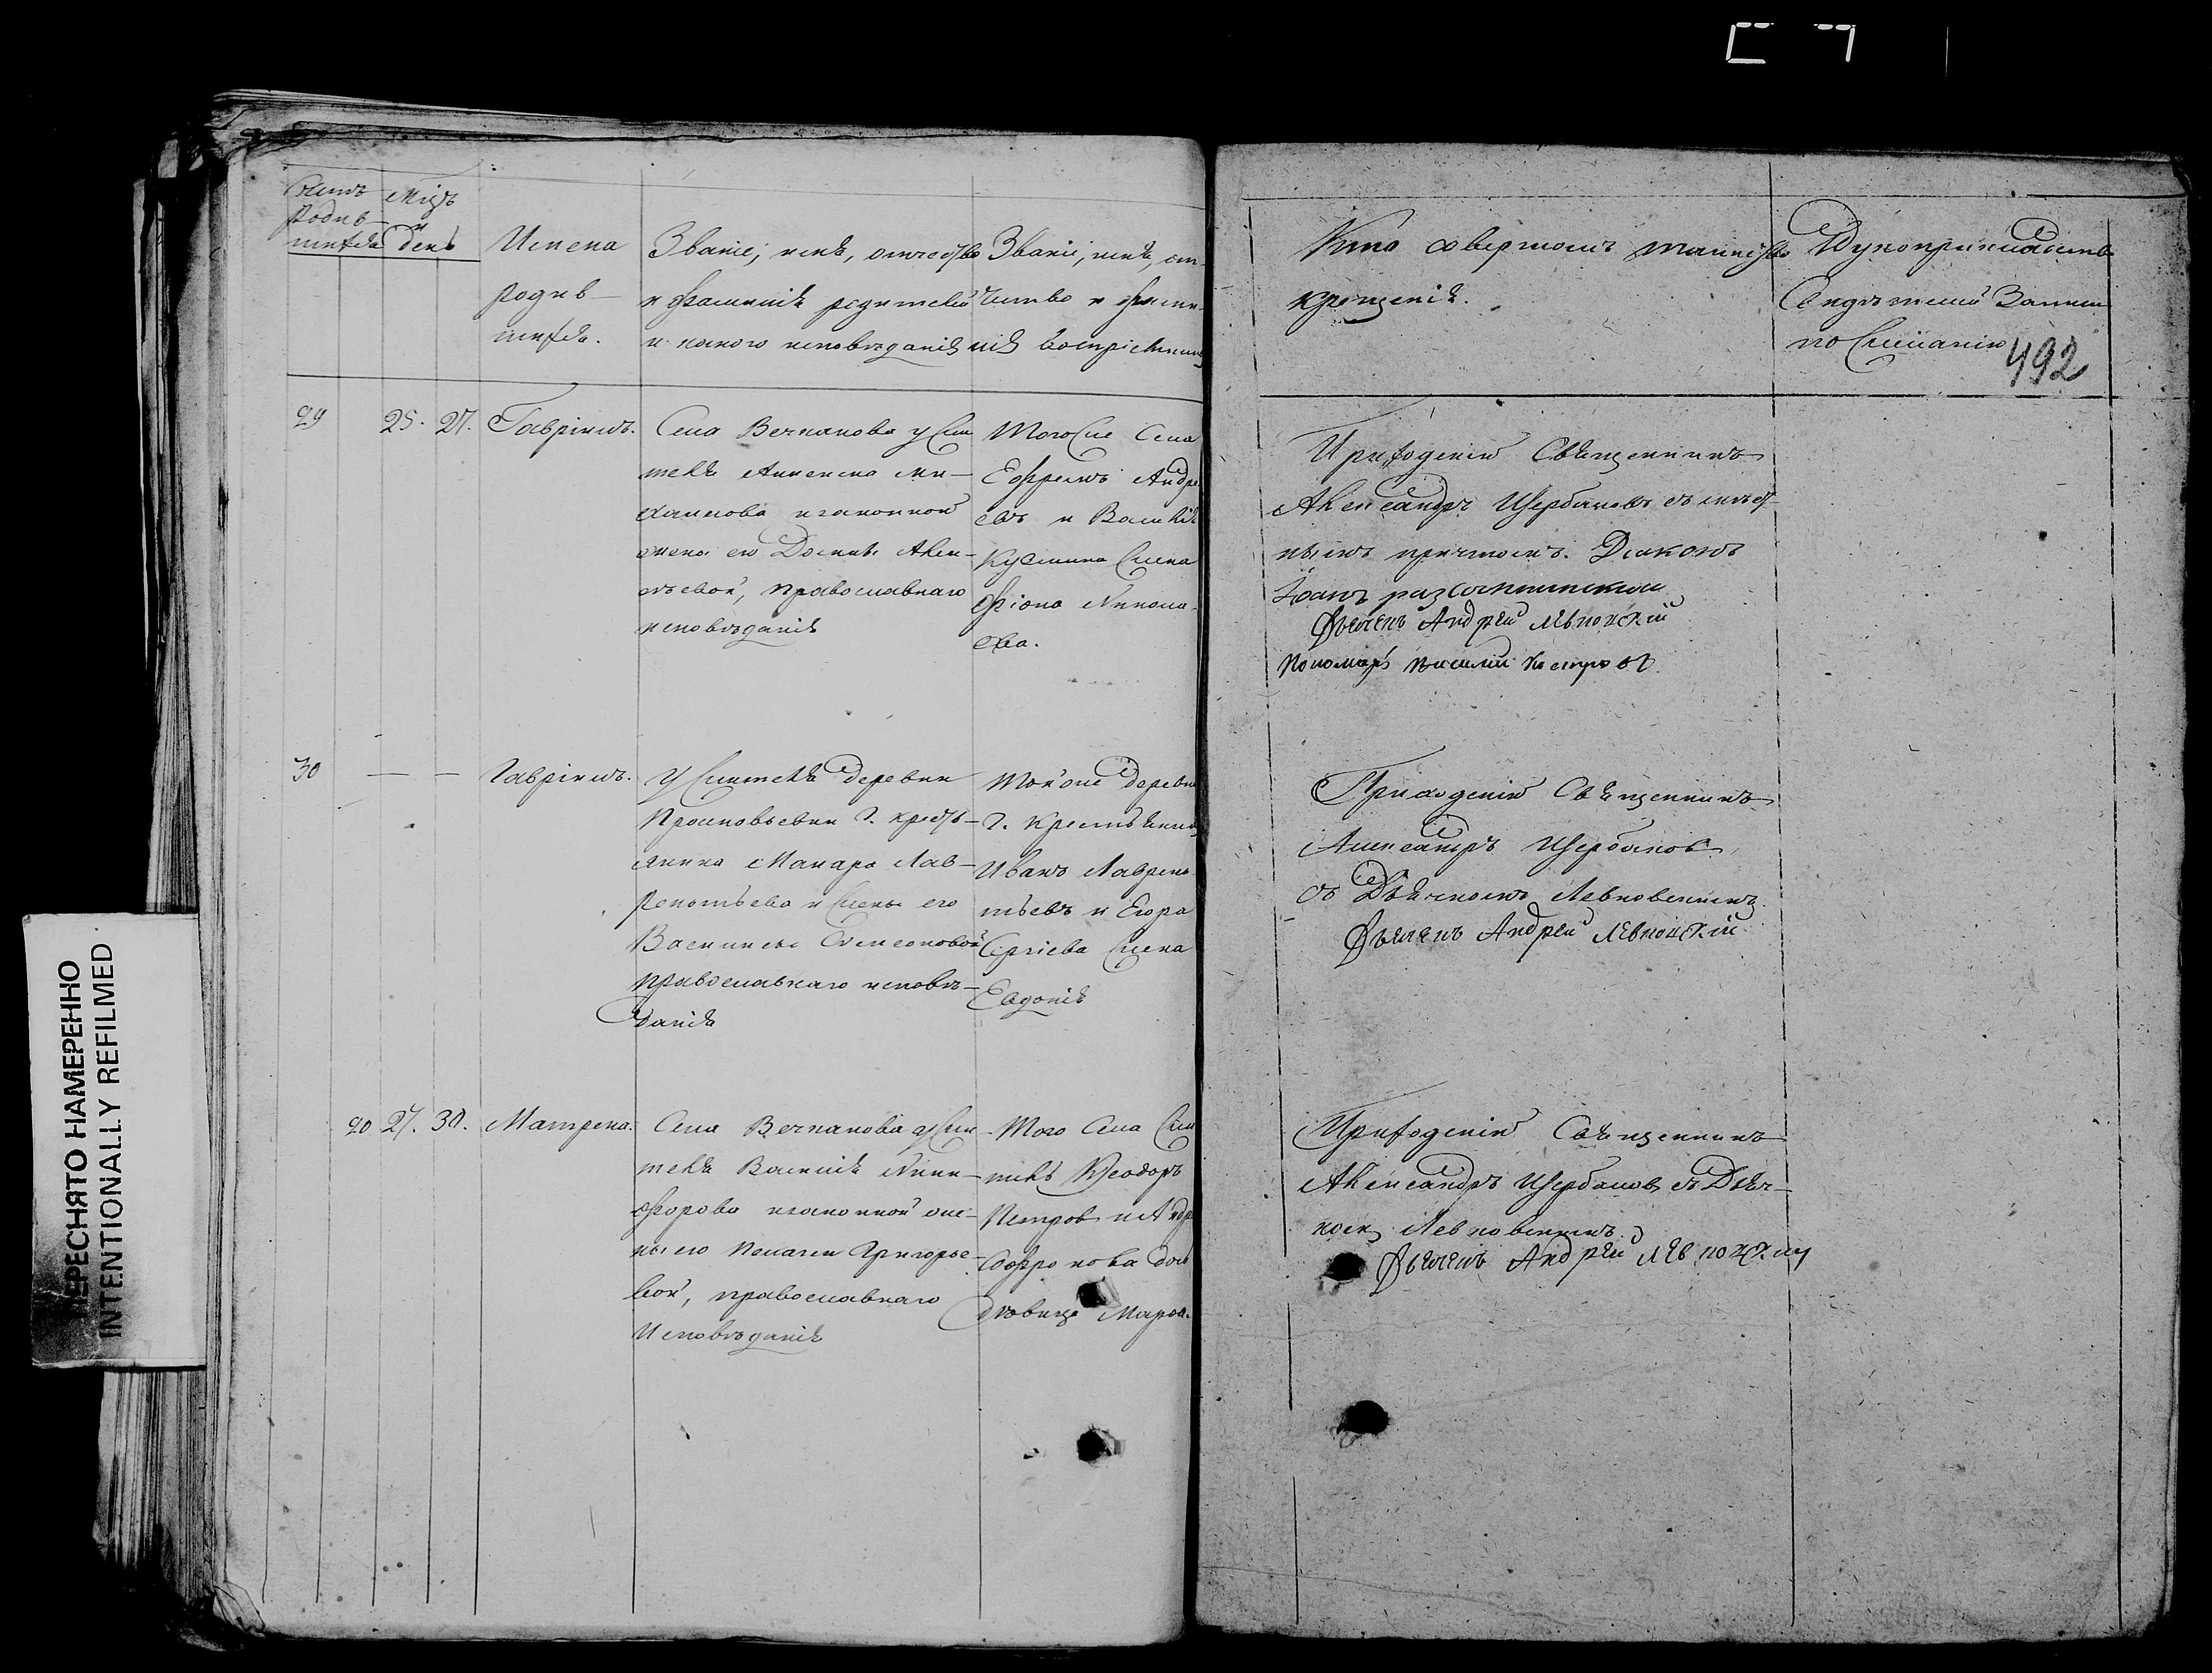 ПЕРЕСНЯТО НАМЕРЕННО
INTENTIONALLY REFILMED
Счетъ Мцъ
Родив- и
шихся день
Имена
родив-
шихся.
Званіе, имя, отчество
и фамилія родителей
и какого исповѣданія
Званіе, имя, от-
чество и фами-
лія воспріемник
Кто совершалъ таинство
крещенія.
Рукоприкладство
Свидѣтелей Записи
по
492
29 25. 27. Гавріилъ.
Села Вечканова у
теля Алексея Ми-
хайлова и законной
жены его Домны Алек-
ѣевой, православнаго
исповѣданія
Того Села
Ефремъ Андре
евъ и Василія
Кузмина жена
Фіона Никола-
ева.
Приходскій Священникъ
Александръ Щербаковъ съ
нымъ причтомъ. Диаконъ
Іоанъ
Дьячекъ Андрей Левковскій
Пономарь Василий
30 — — Гавріилъ.
У деревни
Г. кресть-
янина Макара Лав-
рентьева и жены его
Василисы Симеоновой
православнаго исповѣ-
данія
Той же деревни
Г. Крестьянинъ
Иванъ Лаврен-
тьевъ и Егора
Сергіева жена
Евдокія
Приходскій Священникъ
Александръ Щербаковъ
съ Дьячкомъ Левковскимъ.
Дьячекъ Андрей Левковскій
20 27. 30. Матрена.
Села Вечканова у
теля Василія Ники-
форова и законной же-
ны его Пелагеи Григорье-
вой, православнаго
Исповѣданія
Того Села
тель Ѳеодоръ
Петровъ и Андр
Софронова доч
дѣвица Марѳа.
Приходскій Священникъ
Александръ Щербаковъ съ Дьяч-
комъ Левковскимъ.
Дьячекъ Андрей Левковскій